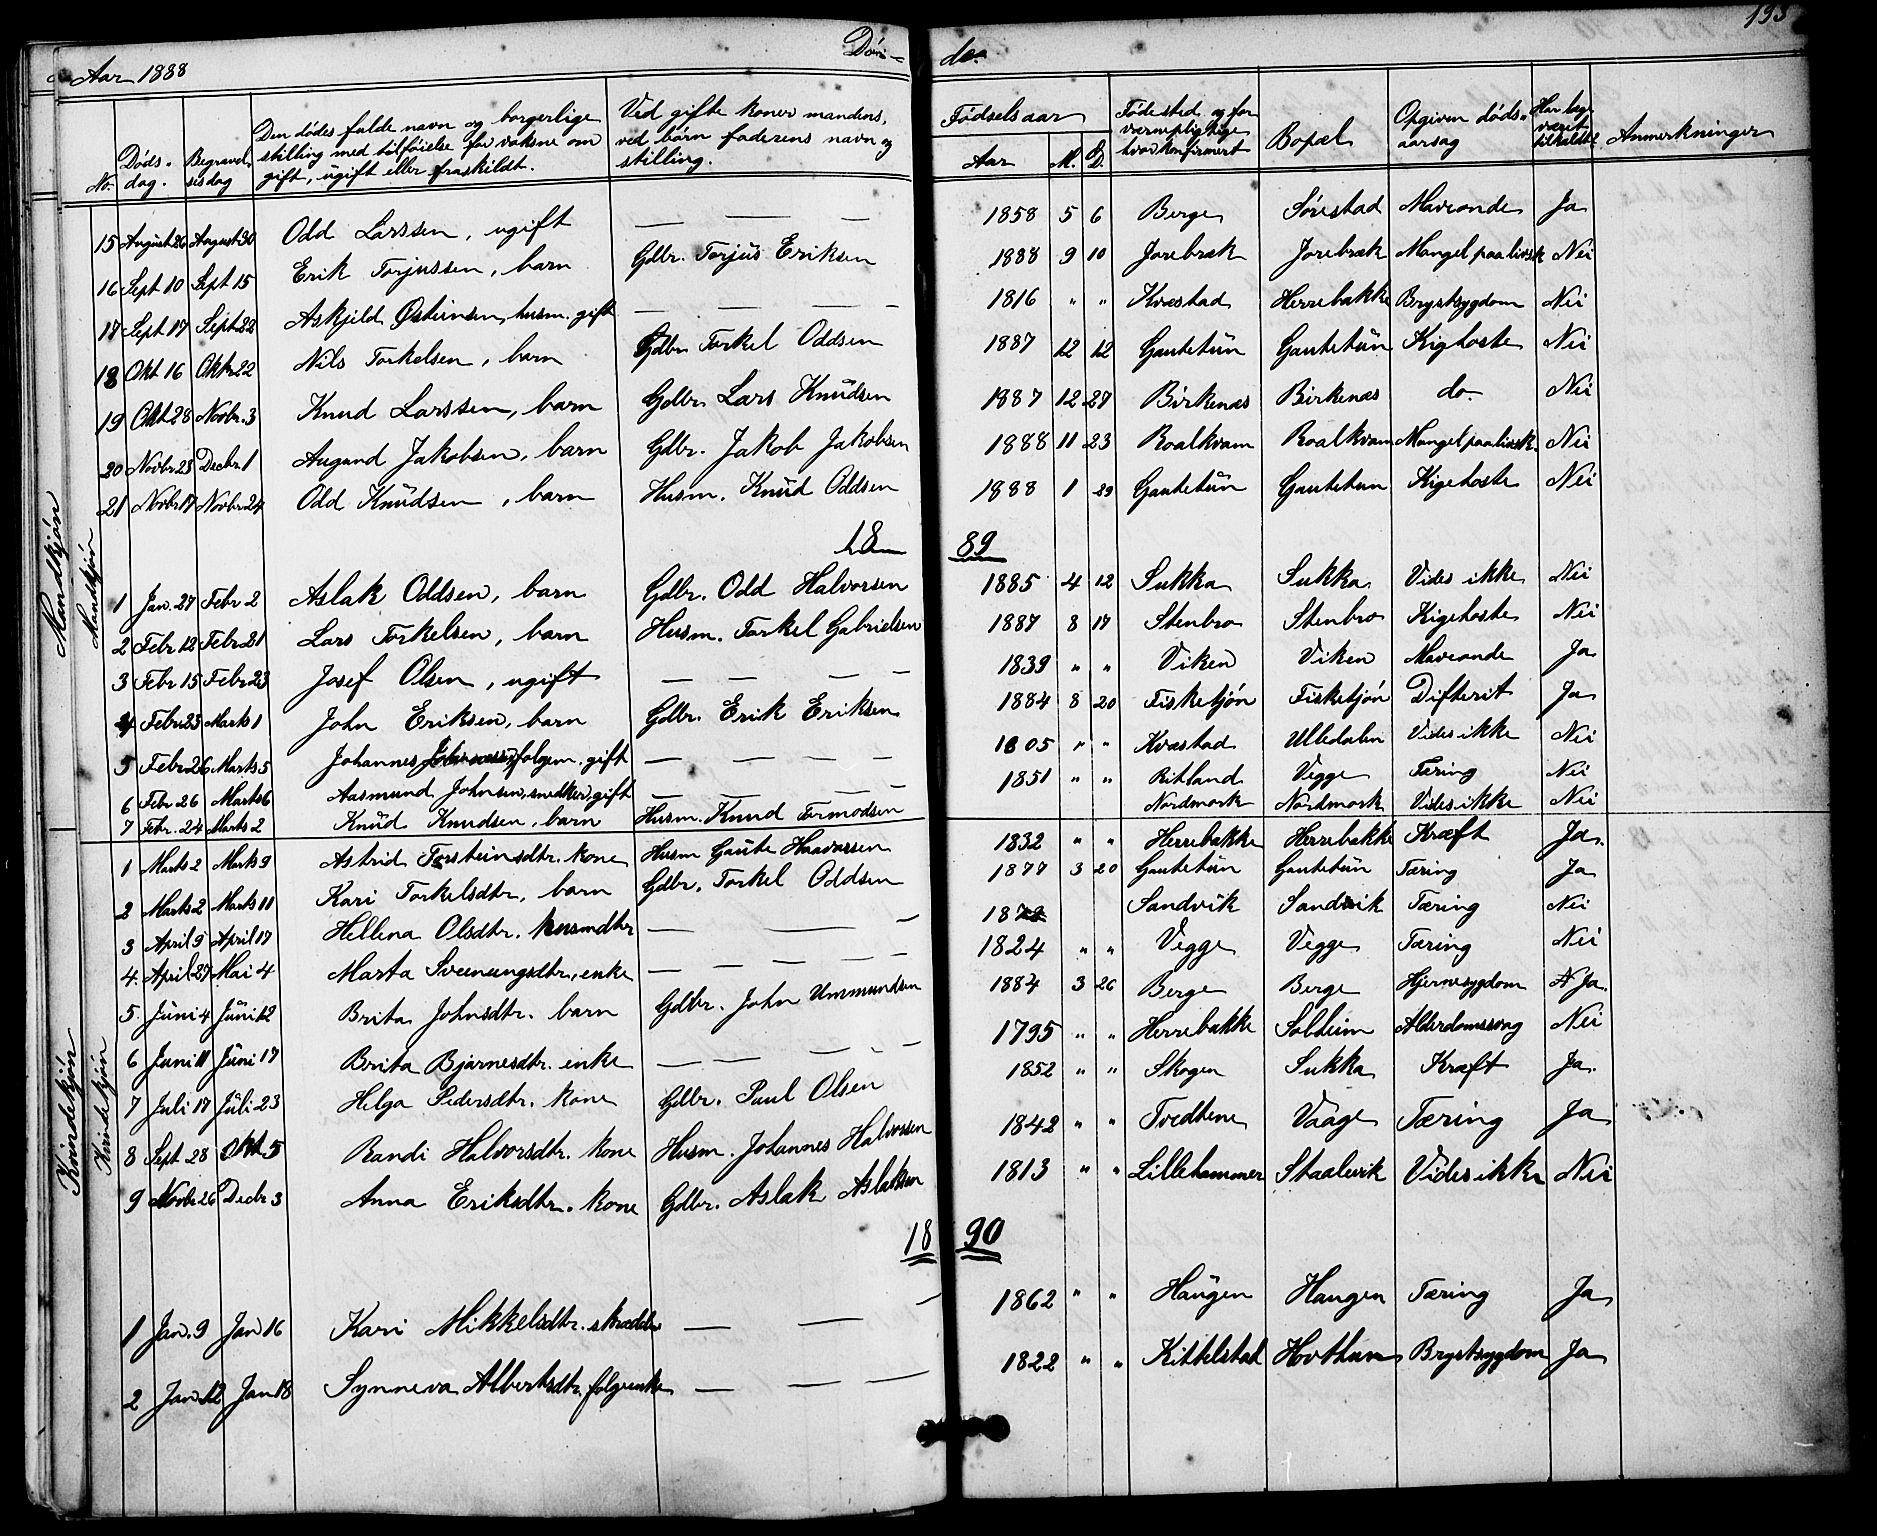 193
Aar 1888 Dö- de.
No. Döds-dag. Begravelsesdag Den dödes fulde navn og borgerlige stilling med tilföielse for voksne om gift, ugift eller fraskildt. Ved gifte koner mandens, ved börn faderens navn og stilling. Födselsaar Aar M. D. Födested og for værnepligtige hvor konfirmert Bopæl Opgiven döds-aarsag Har læge været tilkaldt Anmerkninger
Mandkjön
Mandkjön
15 August 26 August 30 Odd Larssen, ugift — — — 1858 5 6 Berge Sörestad Maveonde Ja
16 Sept 10 Sept 15 Erik Torjussen, barn Gdbr. Torjus Eriksen 1888 9 10 Jorebræk Jorebræk Mangel paa livsk Nei
17 Sept 17 Sept 22 Askjeld Østeinsen, husm. gift — — — — 1816 " " Kvæstad Herrebakke Brystsygdom Nei
18 Okt 16 Okt 22 Nils Torkelsen, barn Gdbr Torkel Oddsen 1887 12 12 Gautetun Gautetun Kighoste Nei
19 Okt 28 Novbr. 3 Knud Larssen, barn Gdbr. Lars Knudsen 1887 12 27 Birkenæs Birkenæs do. Nei
20 Novbr 23 Decbr 1 Augund Jakobsen, barn Gdbr. Jakob Jakobsen 1888 11 23 Roalkvam Roalkvam Mangel paa livsk. Nei
21 Novbr 17 Novbr 24 Odd Knudsen, barn Husm. Knud Oddsen 1888 1 29 Gautetun Gautetun Kigehoste Nei
18 89
1 Jan. 27 Febr 2 Aslak Oddsen, barn Gdbr. Odd Halvorsen 1885 4 12 Sukka Sukka Vides ikke Nei
2 Febr 12 Febr 21 Lars Torkelsen, barn Husm. Torkel Gabrielsen 1887 8 17 Stenbro Stenbro Kigehoste Nei
3 Febr 15 Febr 23 Josef Olsen, ugift — — — — 1839 " " Viken Viken Maveonde Ja
4 Febr 23 Marts 1 John Eriksen, barn Gdbr. Erik Eriksen 1884 8 20 Fisketjön Fisketjön Difterit Ja
5 Febr 26 Marts 5 Johannes folgem. gift — — — — 1805 " " Kvæstad Ulledalen Vides ikke Nei
6 Febr 26 Marts 6 Aasmund Johnsen, snedker, gift — — — — 1851 " " Ritland Vegge Tæring Nei
7 Febr. 24 Marts 2 Knud Knudsen, barn Husm. Knud Tormodsen Nordmork Nordmork Vides ikke Nei
Kvindekjön
Kvindekjön
1 Marts 2 Marts 9 Astrid Torsteinsdtr. kone Husm Gaute Haavarsen 1832 " " Herrebakke Herrebakke Kræft Ja.
2 Marts 2 Marts 11 Kari Torkelsdtr, barn Gdbr. Torkel Oddsen 1877 3 20 Gautetun Gautetun Tæring Ja
3 April 5 April 17 Hellena Olsdtr. husmdtr — — — 18 Sandvik Sandvik Tæring Nei
4. April 27 Mai 4 Marta Sveinungsdtr, enke — — — — 1824 " " Vegge Vegge Tæring Nei
5. Juni 4 Juni 12 Brita Johnsdtr. barn Gdbr. John Ummundsen 1884 3 26 Berge Berge Hjernesygdom Ja.
6 Juni 11 Juni 17 Brita Bjarnesdtr. enke — — — — 1795 " " Herrebakke Solheim Alderdomssvag Nei
7 Juli 17 Juli 23 Helga Pedersdtr. kone Gdbr. Paul Olsen 1852 " " Skogen Sukka Kræft Ja.
8 Sept 28 Okt 5 Randi Halvorsdtr. kone Husm. Johannes Halvorsen 1842 " " Tvedtene Vaage Tæring Ja
9 Novbr 26 Decbr 3 Anna Eriksdtr. kone Gdbr. Aslak Aslaksen 1813 " " Lillehammer Staalevik Vides ikke Nei
18 90
1 Jan. 9 Jan 16 Kari Mikkelsdtr. — — — 1862 " " Haugen Haugen Tæring Ja
2 Jan 12 Jan 18 Synneva Albertsdtr. folgeenke — — — 1822 " " Kittelstad Hovthun Brystsygdom Ja